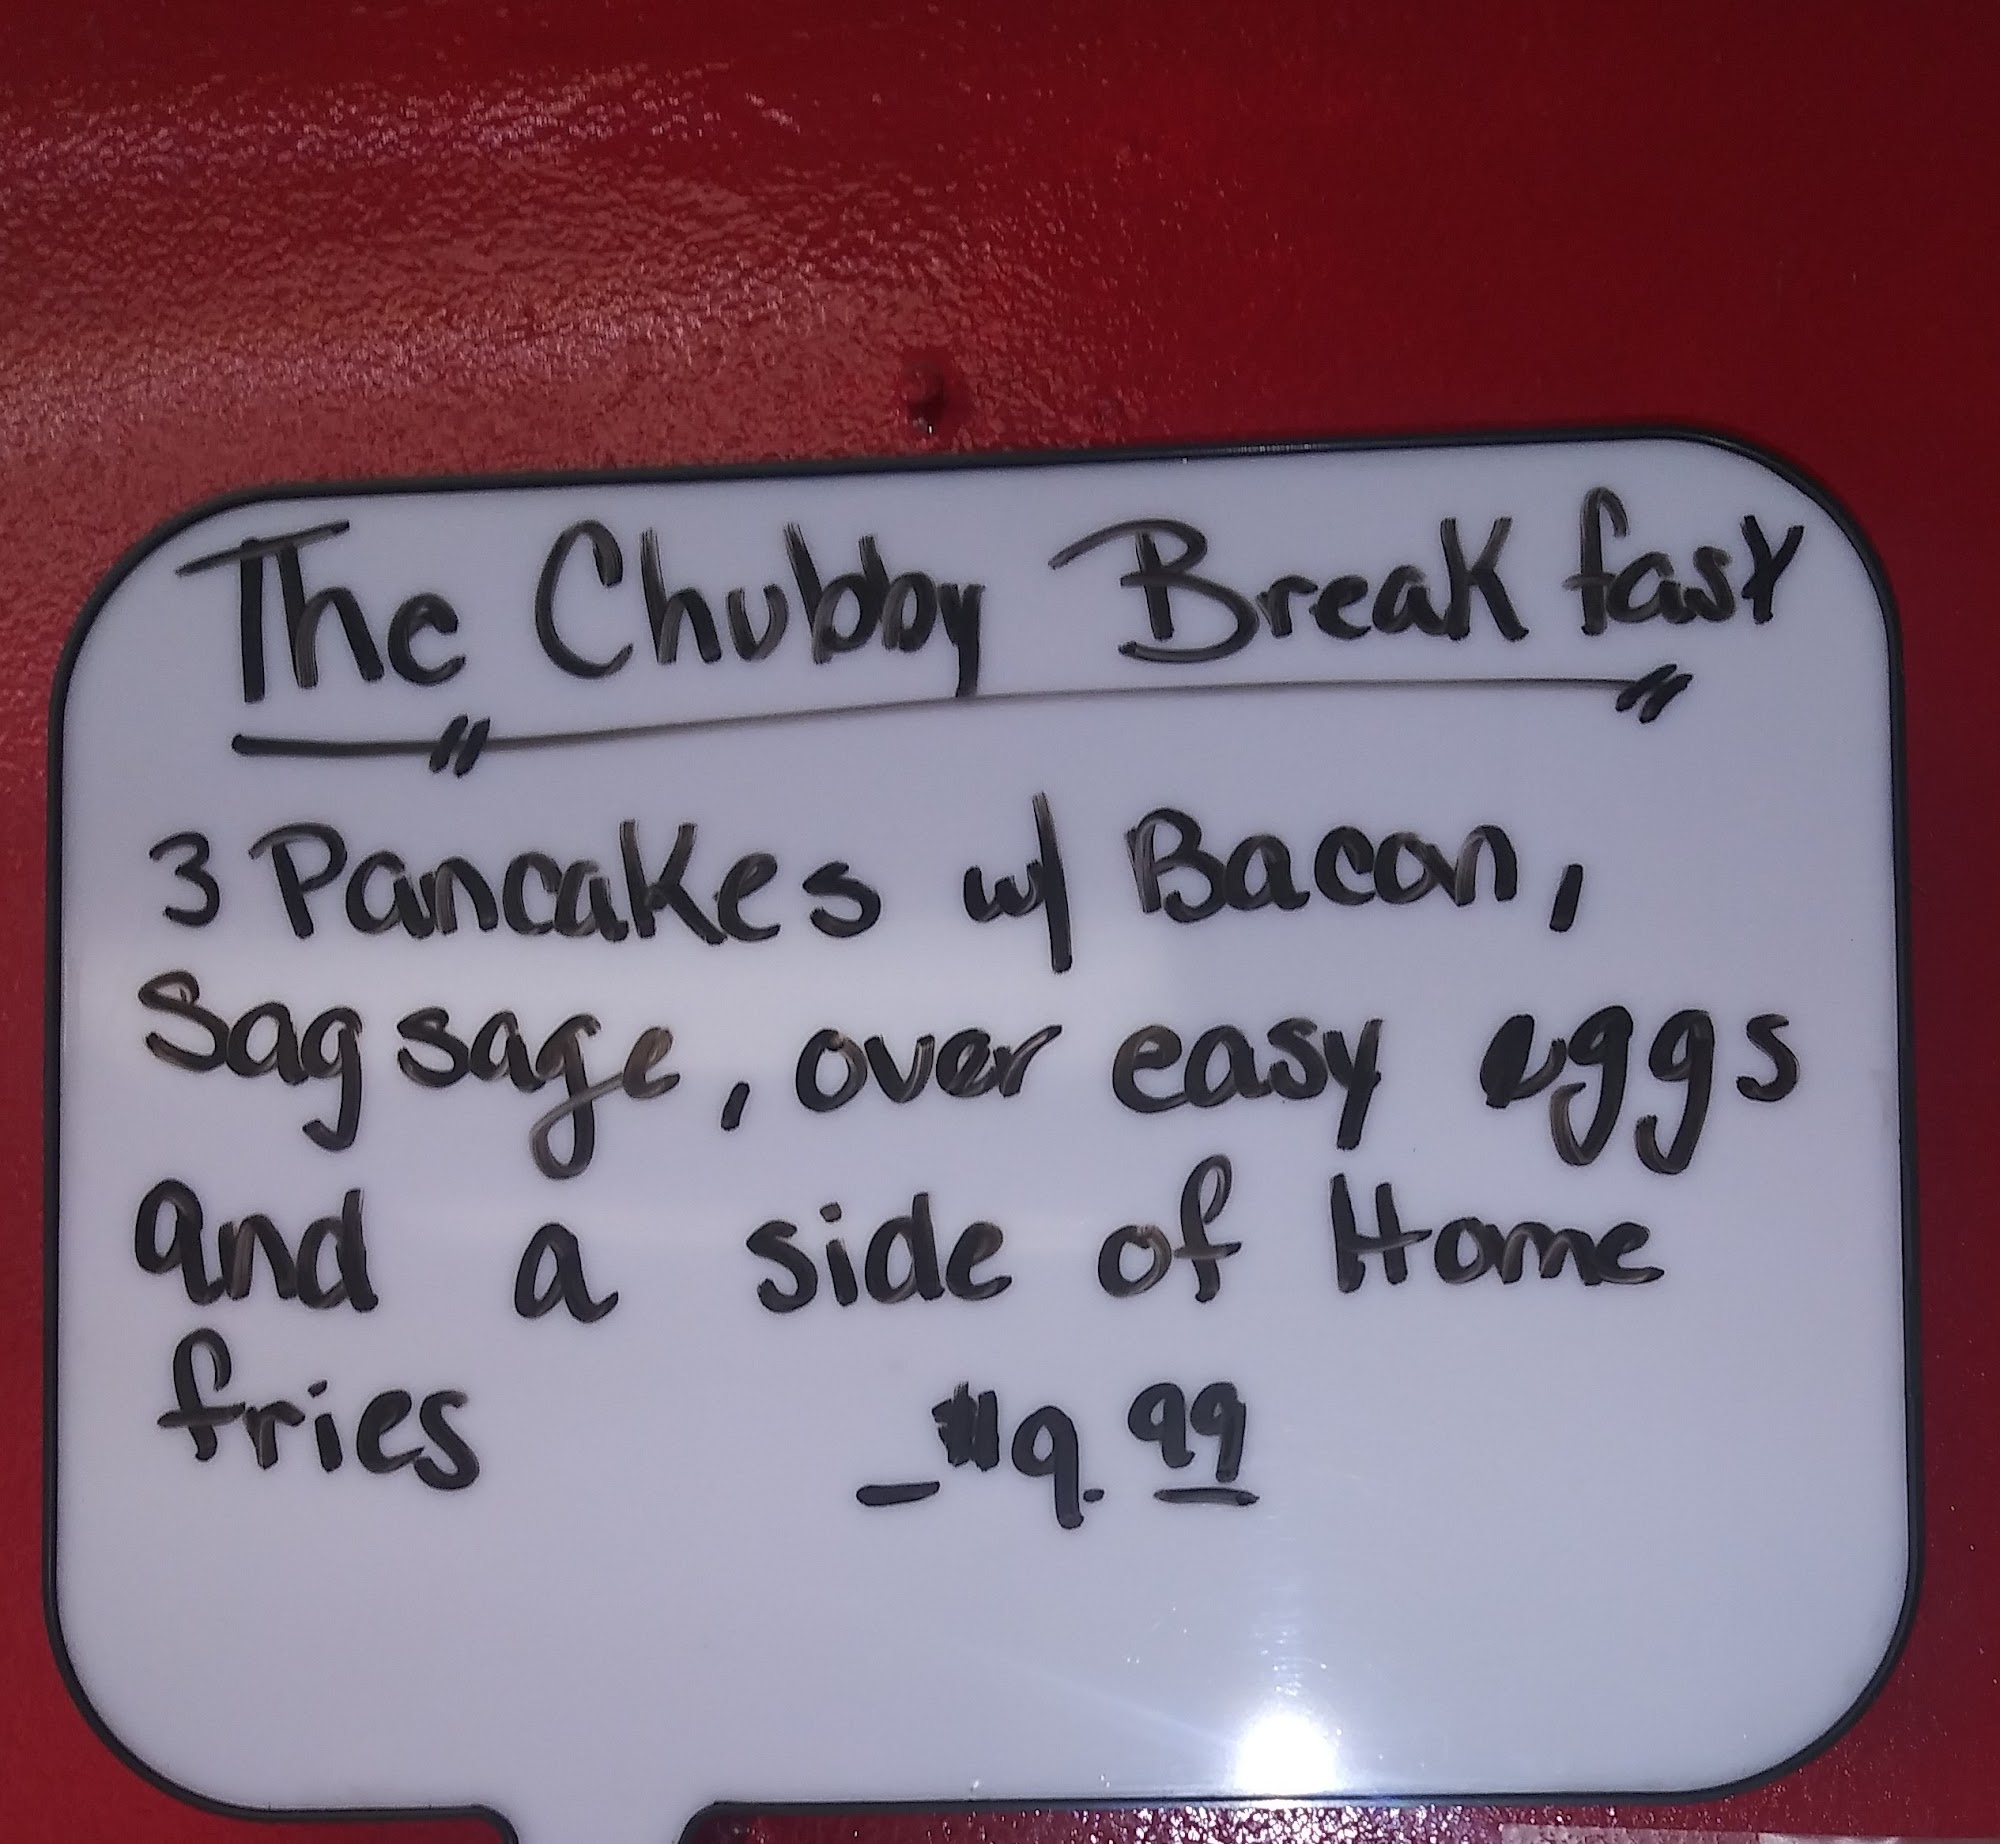 The Chubby Breakfast
3 Pancakes w/ Bacon,
Sagsage, over easy eggs
and a side of Home
fries - $9.99